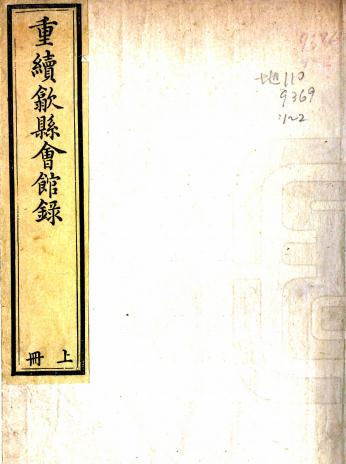 重續歙縣會館錄
上冊
地110
9369
:1~2